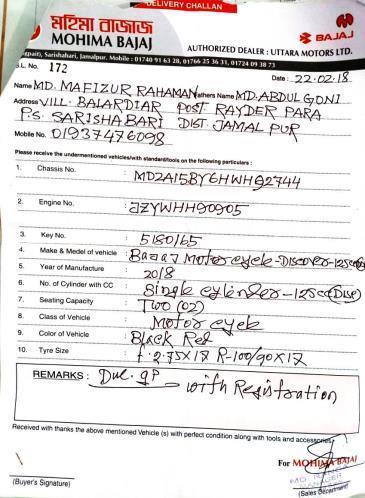 DELIVERY CHALLAN
মহিমা বাজাজ
MOHIMA BAJAJ
BAJAJ
AUTHORIZED DEALER : UTTARA MOTORS LTD.
Sarishabari, Jamalpur. Mobile : 01740 91 63 28, 01766 25 36 31, 01724 09 38 73
S.L. No. 172
Date : 22.02.18
Name MD. MAFIZUR RAHAMAN Fathers Name MD. ABDUL GONI
Address VILL. BALARDIAR POST RAYDER PARA
P.S. SARISHABARI DIST. JAMALPUR
Mobile No. 01937476098
Please receive the undermentioned vehicles/with standard/tools on the following particulars :
1. Chassis No. : MD2A15BY6HWH92744
2. Engine No. : JZYWHH90905
3. Key No. : 5180165
4. Make & Medel of vehicle : Bajaj Motor cycle-DISCOVER-125cc
5. Year of Manufacture : 2018
6. No. of Cylinder with CC : Single cylinder-125cc (Disc)
7. Seating Capacity : Two (02)
8. Class of Vehicle : Motor cycle
9. Color of Vehicle : Black Red
10. Tyre Size : f-2.75X17 R-100/90X17
REMARKS : with Registration
Received with thanks the above mentioned Vehicle (s) with perfect condition along with tools and accessories.
For MOHIMA BAJAJ
(Buyer's Signature)
(Sales Department)